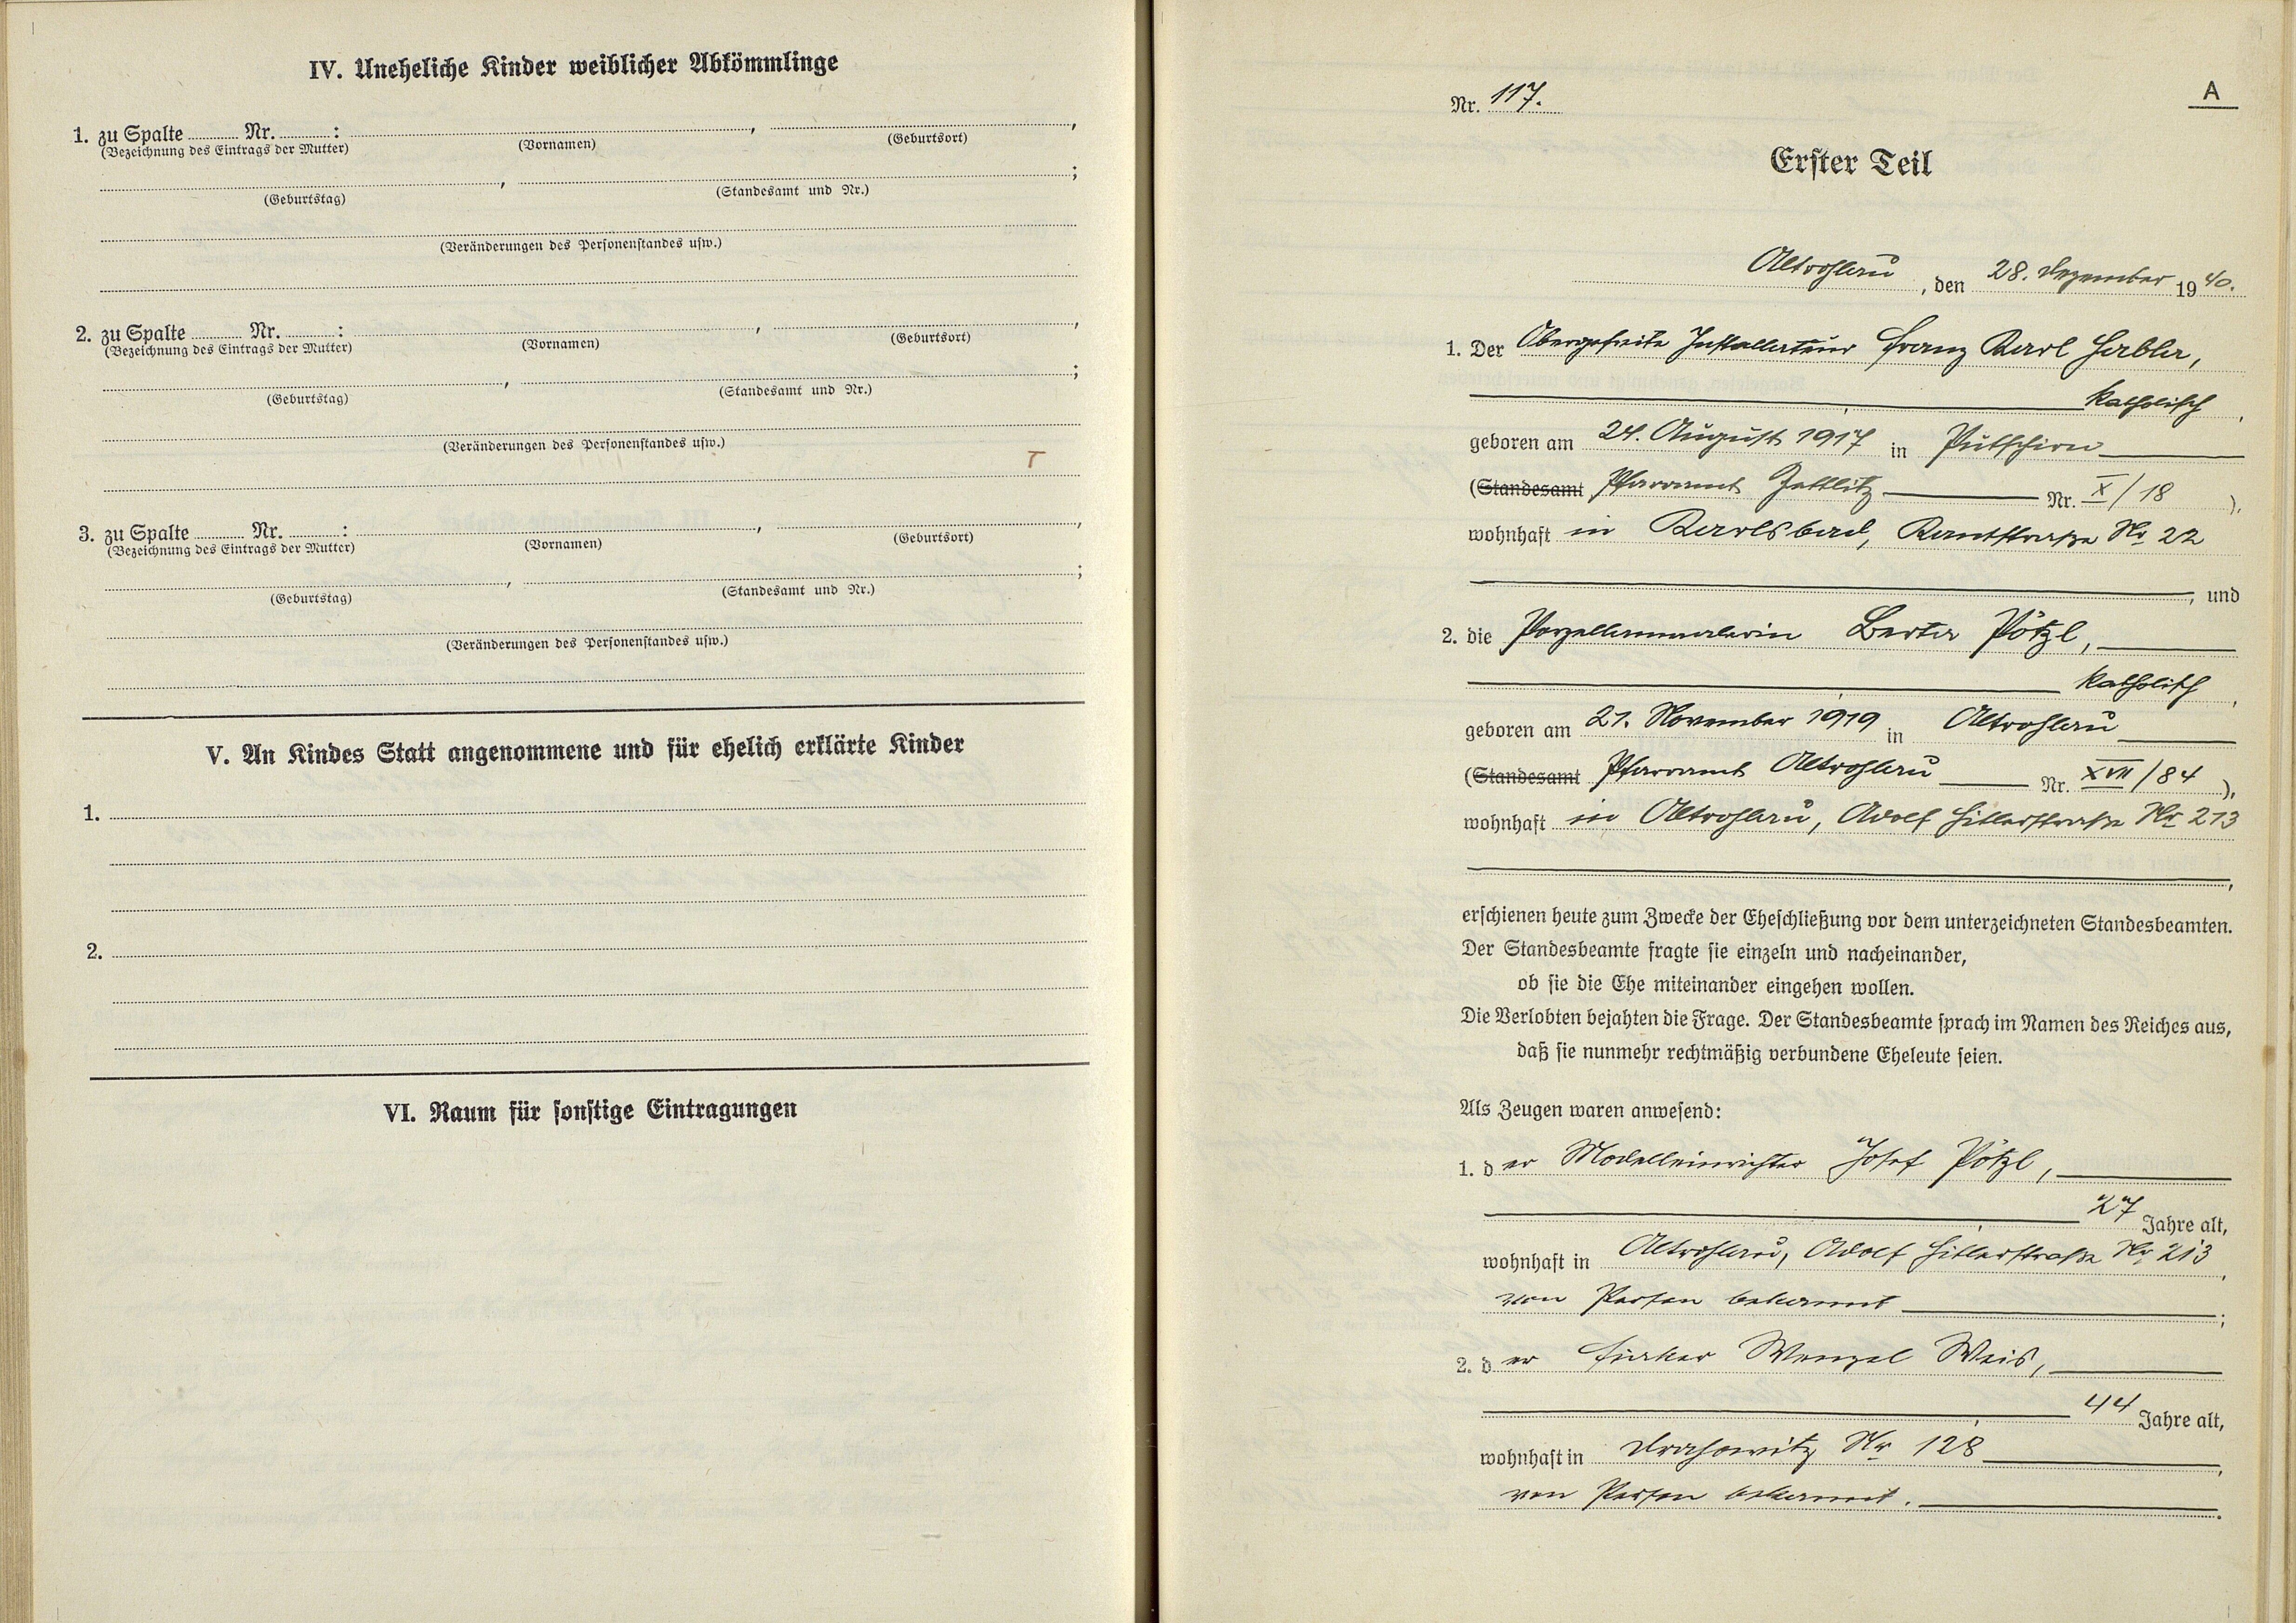 IV. Uneheliche Kinder weiblicher Abkömmlinge
1. zu Spalte ........ Nr. ........ : ........ , ........ ,
(Bezeichnung des Eintrags der Mutter) (Vornamen) (Geburtsort)
........ , ........ ;
(Geburtstag) (Standesamt und Nr.)
(Veränderungen des Personenstandes usw.)
2. zu Spalte ........ Nr. ........ : ........ , ........ ,
(Bezeichnung des Eintrags der Mutter) (Vornamen) (Geburtsort)
........ , ........ ;
(Geburtstag) (Standesamt und Nr.)
(Veränderungen des Personenstandes usw.)
T
3. zu Spalte ........ Nr. ........ : ........ , ........ ,
(Bezeichnung des Eintrags der Mutter) (Vornamen) (Geburtsort)
........ , ........ ;
(Geburtstag) (Standesamt und Nr.)
(Veränderungen des Personenstandes usw.)
V. An Kindes Statt angenommene und für ehelich erklärte Kinder
1.
2.
VI. Raum für sonstige Eintragungen
A
Nr. 117.
Erster Teil
Altrohlau, den 28. Dezember 1940.
1. Der Obergefreite Installateur Franz Karl Habla,
katholisch,
geboren am 24. August 1917 in Putschirn
(Standesamt Pfarramt Zettlitz Nr. X/18 ),
wohnhaft in Karlsbad, Kantstraße Nr 22
, und
2. die Porzellanmalerin Berta Pötzl,
katholisch,
geboren am 21. November 1919 in Altrohlau
(Standesamt Pfarramt Altrohlau Nr. XVII/84 ),
wohnhaft in Altrohlau, Adolf Hitlerstraße Nr 213
,
erschienen heute zum Zwecke der Eheschließung vor dem unterzeichneten Standesbeamten.
Der Standesbeamte fragte sie einzeln und nacheinander,
ob sie die Ehe miteinander eingehen wollen.
Die Verlobten bejahten die Frage. Der Standesbeamte sprach im Namen des Reiches aus,
daß sie nunmehr rechtmäßig verbundene Eheleute seien.
Als Zeugen waren anwesend:
1. der Modelleinrichter Josef Pötzl,
27 Jahre alt,
wohnhaft in Altrohlau, Adolf Hitlerstraße Nr 213,
von Person bekannt ;
2. der Wenzel Weis,
44 Jahre alt,
wohnhaft in Drahowitz Nr 128 ,
von Person bekannt.